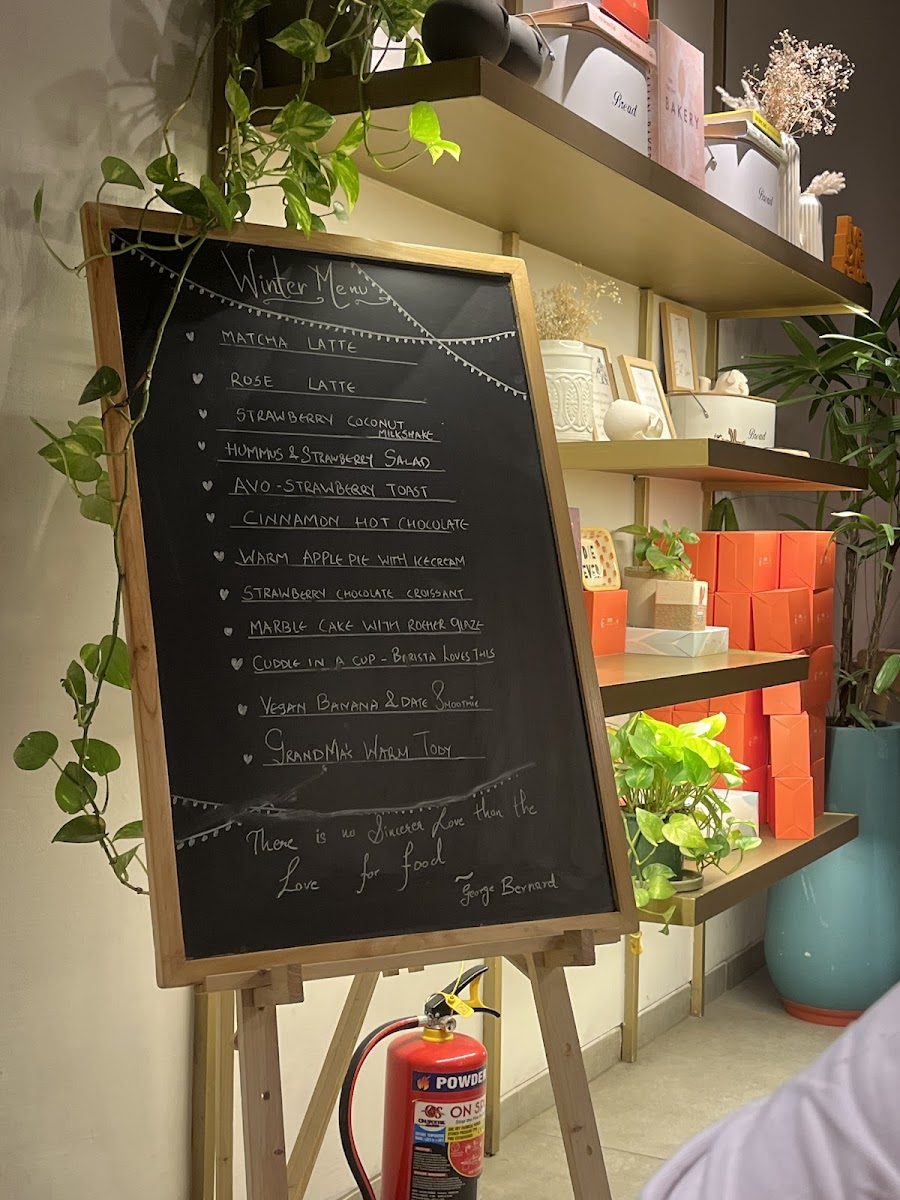 Bread
BAKERY
Bread
Winter Menu
MATCHA LATTE
ROSE LATTE
STRAWBERRY COCONUT
MILKSHAKE
HUMMUS & STRAWBERRY SALAD
AVO-STRAWBERRY TOAST
CINNAMON HOT CHOCOLATE
WARM APPLE PIE WITH ICECREAM
STRAWBERRY CHOCOLATE CROISSANT
MARBLE CAKE WITH ROCHER GLAZE
CUDDLE IN A CUP - BARISTA LOVES THIS
VEGAN BANANA & DATE SMOOTHIE
GRANDMA'S WARM TODY
There is no Sincerer Love than the
Love for food
~George Bernard
Bread
POWDER
ON S